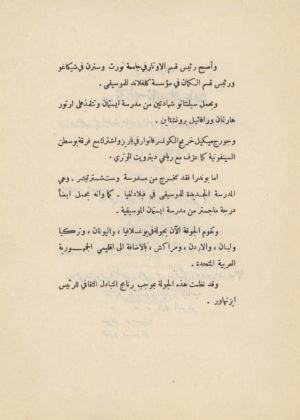 وأصبح رئيس قسم الاوتار في جامعة نورث وسترن في شيكاغو
ورئيس قسم الكمان في مؤسسة كلفلاند للموسيقى .
ويحمل سيلنتانو شهادتين من مدرسة ايستمان وتتلمذ على ارثور
هارتمان ورافائيل برونشتاين .
وجورج ميكيل خريج الكونسرفاتوار في باريز واشترك مع فرقة بوسطن
السيمفونية كما عزف مع رباعي ديترويت الوتري .
اما بوندرا فقد تخرج من مدرسة وستشستر تيتشر . وهي
المدرسة الجديدة للموسيقى في فيلادلفيا . كما وانه يحمل ايضاً
درجة ماجستر من مدرسة ايستمان الموسيقية .
وتقوم الجوقة الآن بجولة في يوغسلافيا ، واليونان ، وتركيا
ولبنان ، والاردن ، ومراكش ، بالاضافة الى اقليمي الجمهورية
العربية المتحدة .
وقد نظمت هذه الجولة بموجب برنامج التبادل الثقافي للرئيس
ايزنهاور .